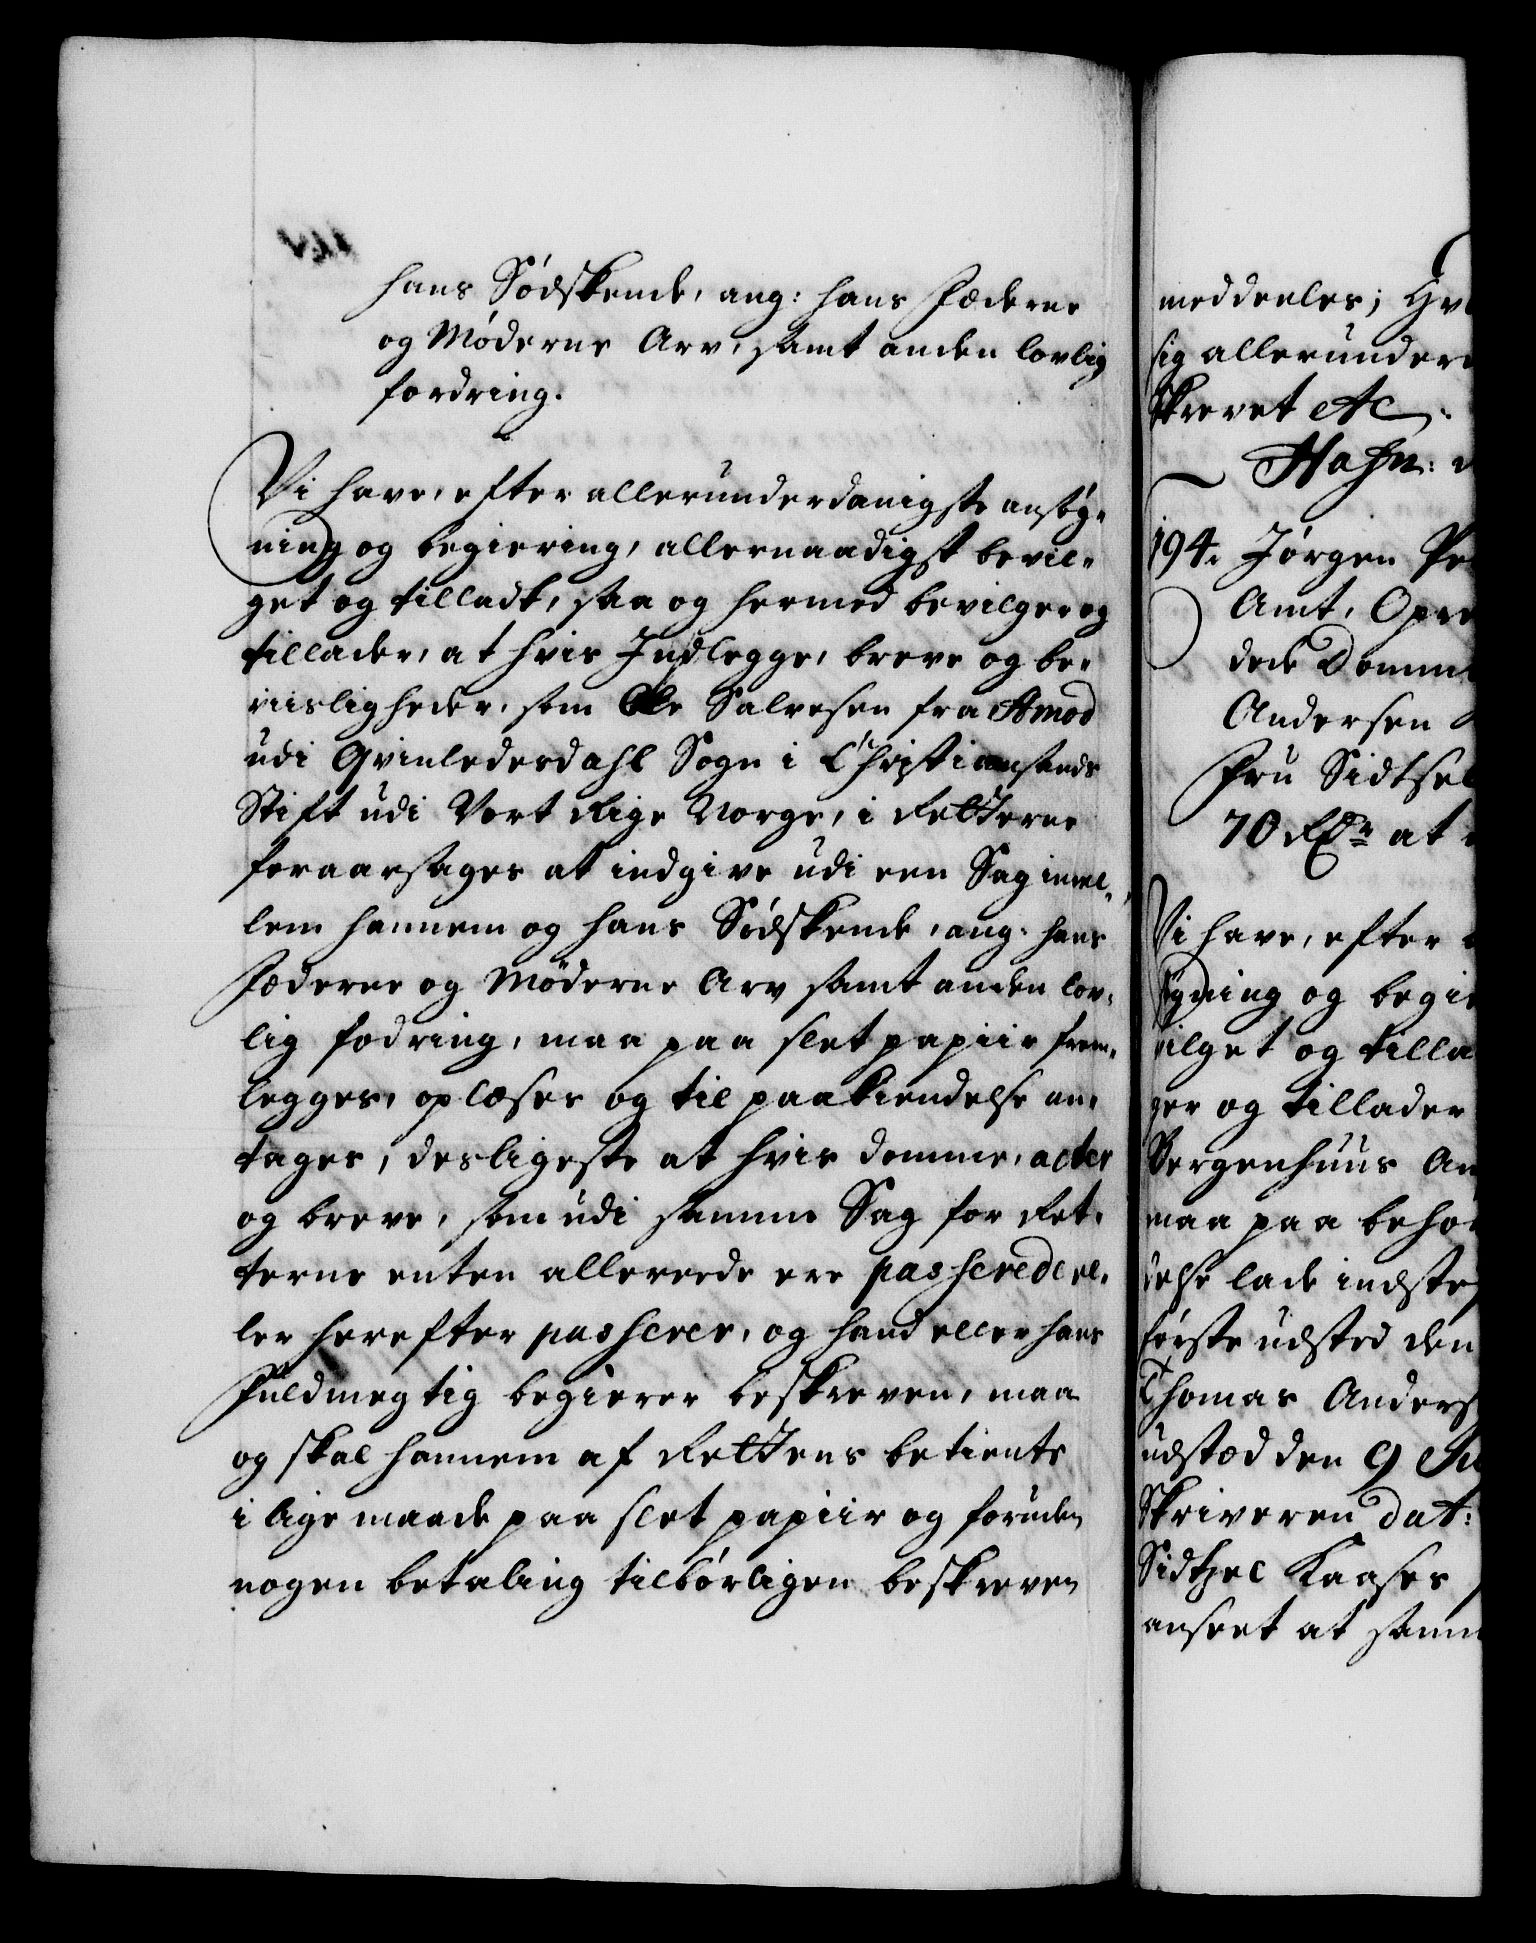 hans Södskende, ang: hans Fæderne
og Möderne Arv, samt anden lovlig
fordring.
Vi have, efter allerunderdanigste ansög-
ning og begiering, allernaadigst bevil-
get og tilladt, saa og hermed bevilger og
tillader, at hvis Indlegge, breve og be-
viisligheder, som Ole Salvesen fra Amod
udi Qvinlederdahl Sogn i Christiansands
Stift udi Vort Rige Norge, i Retterne
foraarsages at indgive udi een Sag imel-
lem hannem og hans Södskende, ang: hans
Fæderne og Möderne Arv samt anden lov-
lig fodring, maa paa slet papiir frem-
legges, oplæses og til paakiendelse an-
tages, desligeste at hvis domme, acter
og breve, som udi samme Sag for Ret-
terne enten allereede ere passerede el-
ler herefter passerer, og hand eller hans
Fuldmegtig begierer beskreven, maa
og skal hannem af Rettens betiente
i lige maade paa slet papiir og foruden
nogen betaling tilbörligen beskreven
meddeeles; Hv
sig allerunder
Skrevet etc.
Hafn:
194. Jörgen Pe
Amt, Opre
dede Domm
Andersen
Fru Sidtsel
70 Rdr at
Vi have, efter
sögning og begie
vilget og tilla
ger og tillader
Bergenhuus Am
maa paa beho
delse lade indste
förste udsted den
Thomas Anders
udstæd den 9 Ju
Skriveren dat:
Sidtzel Kaases
anseet at samm